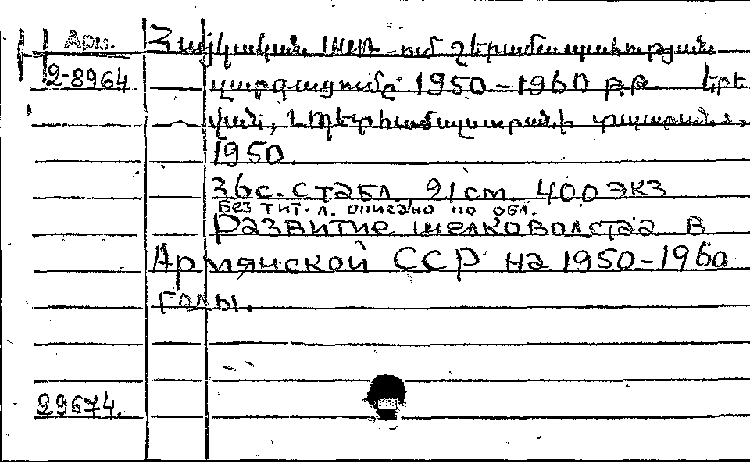 Арм.
2-8964
Հայկական ՍՍՌ-ում շերամապահության
զարգացումը 1950-1960 թթ. Երե
վան, Պետհամալսարանի տպարան,
1950.
36с. с табл. 21cm. 400 экз
Без тит. л. описано по обл.
Развитие шелководства в
Армянской ССР на 1950-1960
годы.
29674.